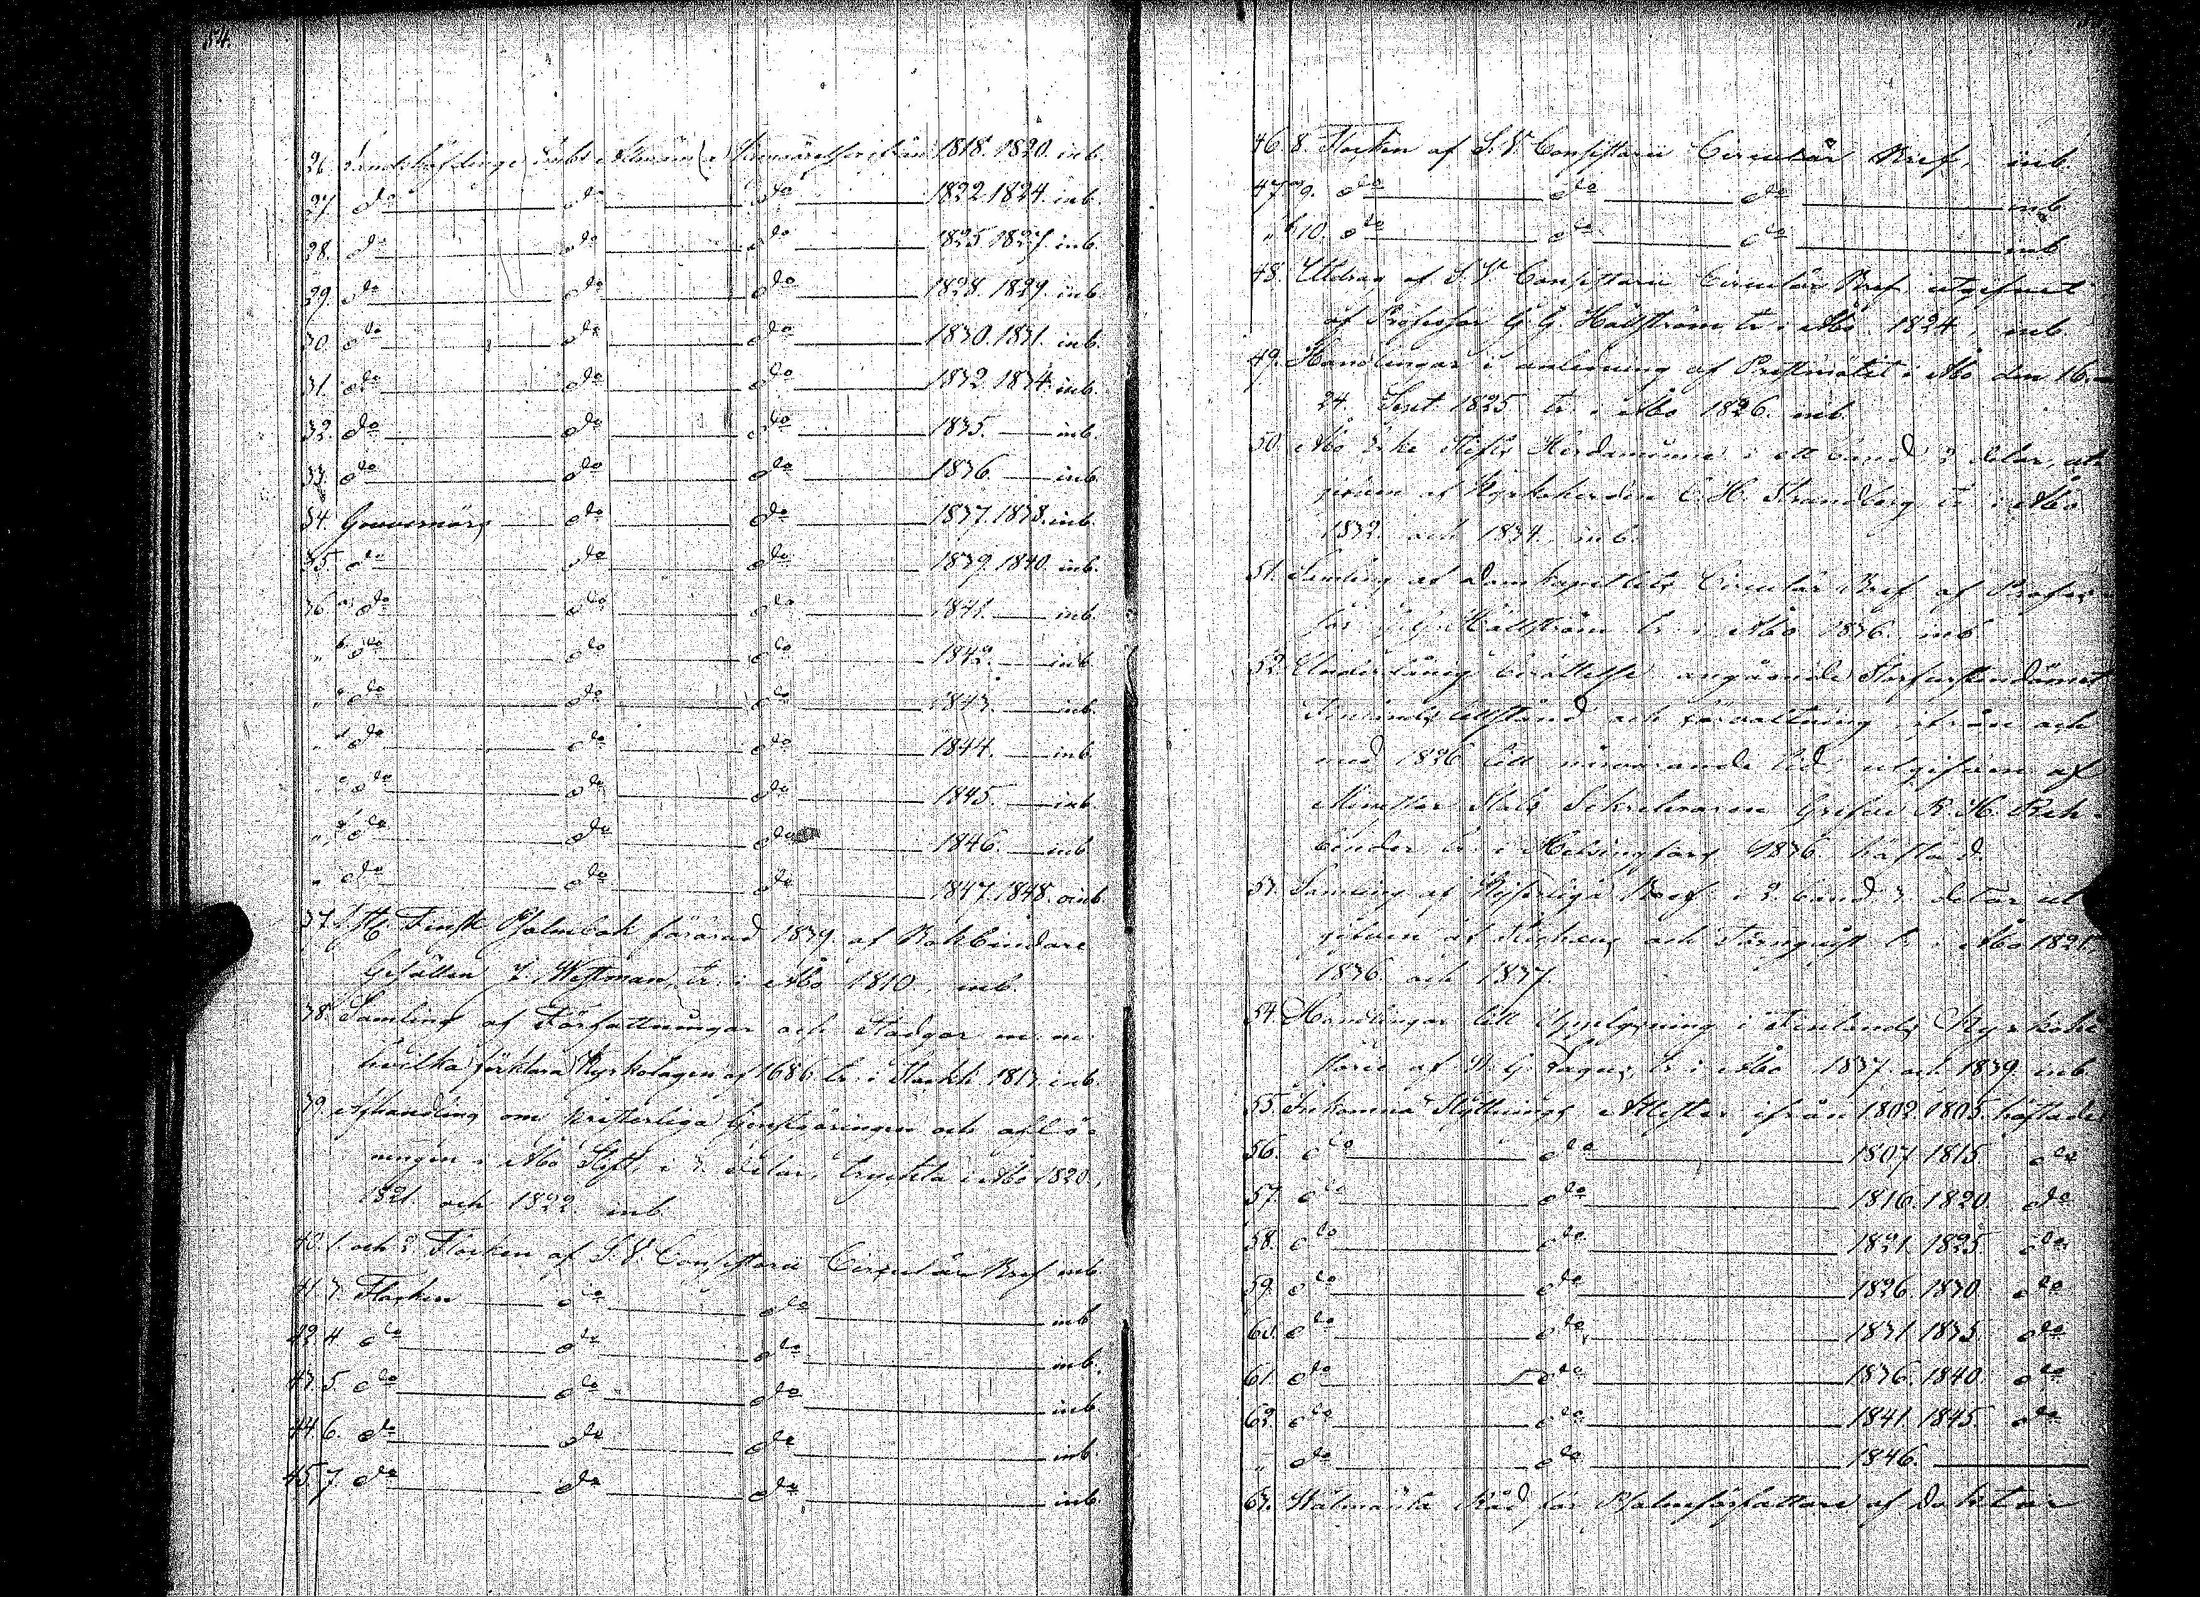 54.
26. Landshöfdinge 1818. 1820. inb.
27. do do do 1822. 1824. inb.
28. do do do 1825. 1827. inb.
29. do do do 1828. 1829. inb.
30. do do do 1830. 1831. inb.
31. do do do 1832. 1834. inb.
32. do do do 1835. inb.
33. do do do 1836. inb.
34. Gouverneurs do do 1837. 1838. inb.
35. do do do 1839. 1840. inb.
36. a do do do 1841. inb.
" b do do do 1842. inb.
" c do do do 1843. inb.
" d do do do 1844. inb.
" e do do do 1845. inb.
" do do do 1846. inb
" do do do 1847. 1848. oinb.
37. Finsk Psalmbok förärad 1839 af Bokbindare
Gesällen J. Westman, tr. i Åbo 1810, inb.
38. Samling af Författningar och Stadgar m. m.
hvilka förklara Kyrkolagen af 1686 tr. i Stockh. 1813 inb.
39. Afhandling om Presterliga tjenstgöringen och aflö-
ningen i Åbo Stift, i 3 delar, tryckta i Åbo 1820,
1821 och 1822. inb
40. 1. och 2 Flocken af S. V. Consistorii Circulär Bref inb.
41. 3. Flocken do do inb
42. 4 do do do inb.
43. 5. do do do inb
44. 6. do do do inb.
45. 7. do do do inb
46. 8. Flocken af S. V. Consistorii Circulär Bref, inb.
47. a 9. do do do inb
" b 10. do do do inb
48. Utdrag af S. V. Consistorii Circulär Bref, utgifvet
af Professor G. G. Hällström tr. i Åbo 1824, inb
49. Handlingar i anledning af Prestmötet i Åbo den 16.
24. Sept. 1825 tr. i Åbo 1826. inb.
50. Åbo Erke Stifts Herdaminne i ett band 2 delar, ut-
gifven af Kyrkoherden C. H. Strandberg tr. i Åbo
1832 och 1834. inb.
51. Samling af Domkapitlets Circulär Bref af Profes-
sor G. G. Hällström tr. i Åbo 1836. inb
52. Underdånig berättelse angående Storfurstendömet
Finlands tillstånd och förvaltning ifrån och
med 1826 till närvarande tid, utgifven af
Minister Stats Sekreteraren Grefve R. H. Reh-
binder tr. i Helsingfors 1836. häftad.
53. Samling af Kejserliga Bref i 2 band 3. delar ut-
gifven af och Törnqvist tr. i Åbo 1821,
1836 och 1837.
54. Handlingar till Upplysning i Finlands Kyrkohi-
storie af W. G. Lagus, tr. i Åbo 1837. och 1839. inb
55. Inkomna Flyttnings Attester ifrån 1802. 1805. häftade
56. do do 1807. 1815. do
57. do do 1816. 1820. do
58. do do 1821. 1825. do
59. do do 1826. 1830. do
60. do do 1831. 1835. do
61. do do 1836. 1840. do
62. do do 1841. 1845. do
" do do 1846.
63. Välmenta Råd för Psalmförfattare af Doktor